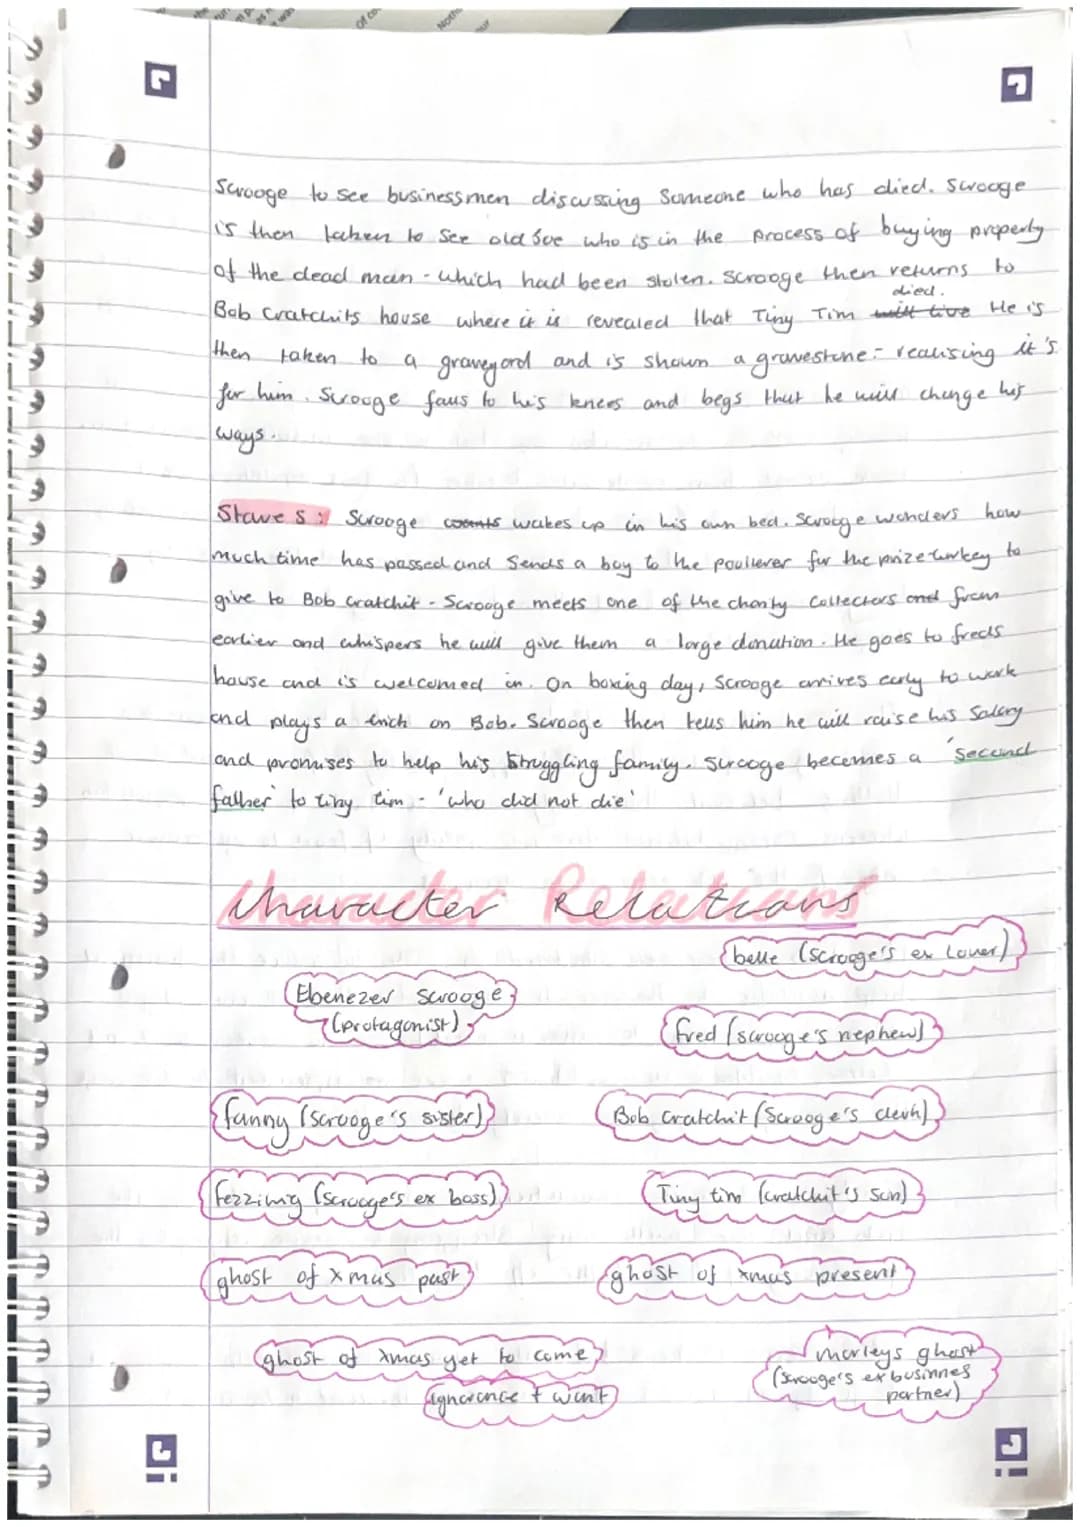 Scrooge to see businessmen discussing Someone who has died. Scrooge
is then taken to see old Joe who is in the process of buying property
of the dead man - which had been stolen. Scrooge then returns to
died.
Bob Cratchits house where it is revealed that Tiny Tim will live He is
then taken to a graveyard and is shown a gravestone - realising it's
for him. Scrooge falls to his knees and begs that he will change his
ways.
Stave 5: Scrooge counts wakes up in his own bed. Scrooge wonders how
much time has passed and Sends a boy to the poulterer for the prize turkey to
give to Bob Cratchit - Scrooge meets one of the charity collectors and from
earlier and whispers he will give them a large donation. He goes to freds
house and is welcomed in. On boxing day, Scrooge arrives early to work
and plays a trick on Bob. Scrooge then tells him he will raise his Salary
and promises to help his struggling family. Scrooge becomes a 'second
father' to tiny tim - 'who did not die'
Character Relations
belle (scrooge's ex lover)
Ebenezer scrooge
(protagonist)
fred (scrooge's nephew)
fanny (scrooge's sister)
Bob Cratchit (Scrooge's clerk)
fezziwig (scrooge's ex boss)
Tiny tim (cratchit's son)
ghost of xmas past
ghost of xmas present
ghost of xmas yet to come
ignorance + want
marleys ghost
(scrooge's ex businnes
partner)